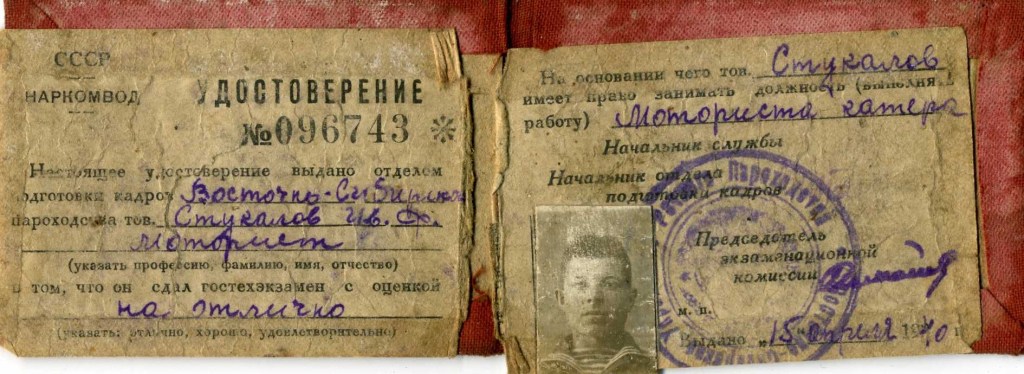 СССР
НАРКОМВОД
УДОСТОВЕРЕНИЕ
№096743 *
Настоящее удостоверение выдано отделом
одготовки кадров Восточно-Сибирск
пароходства тов. Стукалов Ив. Ф.
Моторист
(указать профессию, фамилию, имя, отчество)
в том, что он сдал гостехэкзамен с оценкой
на отлично
(указать: отлично, хорошо, удовлетворительно)
На основании чего тов. Стукалов
имеет право занимать должность (выполня
работу) Моториста катера
Начальник службы
Начальник отдела
подготовки кадров
Председатель
экзаменационной
комиссии
м. п.
Выдано „15" апреля 1940 г.
Пароходство